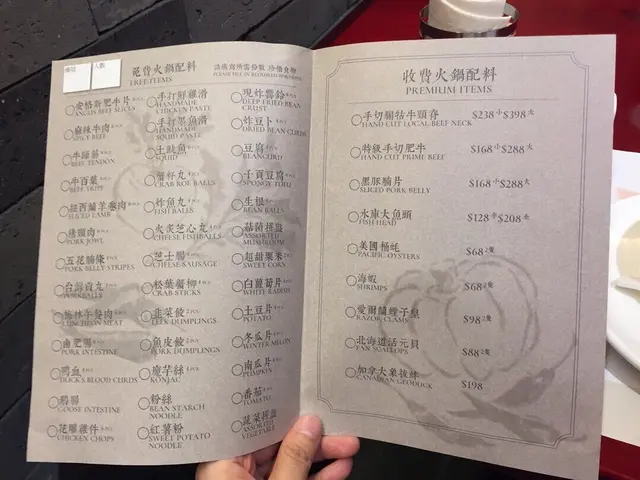 枱號
人數
免費火鍋配料
FREE ITEMS
請填寫所需份數 珍惜食物
安格斯肥牛片
ANGUS BEEF SLICES
麻辣牛肉
SPICY BEEF
牛蹄筋
BEEF TENDON
牛百葉
BEEF TRIPE
紐西蘭羊卷肉
SLICED LAMB
豬頸肉
PORK JOWL
五花腩條
PORK BELLY STRIPES
台灣貢丸
PORK BALLS
LUNCHEON MEAT
鹵肥腸
PORK INTESTINE
鴨血
DUCK'S BLOOD CURDS
鵝腸
GOOSE INTESTINE
花雕雞件
CHICKEN CHOPS
手打鮮雞滑
HANDMADE
CHICKEN PASTE
手打墨魚滑
HANDMADE
SQUID PASTE
土魷魚
SQUID
蟹籽丸
CRAB ROE BALLS
炸魚丸
FISH BALLS
火炙芝心丸
CHEESE FISHBALLS
芝士腸
CHEESE SAUSAGE
松葉蟹柳
CRAB STICKS
韭菜餃
LEEK DUMPLINGS
魚皮餃
PORK DUMPLINGS
魔芋絲
KONJAC
粉絲
BEAN STARCH
NOODLE
紅薯粉
SWEET POTATO
NOODLE
現炸響鈴
DEEP FRIED BEAN
CRUST
炸豆卜
DRIED BEAN CURDS
豆腐
BEANCURD
千頁豆腐
SPONGE TOFU
生根
BEAN BALLS
菇菌拼盤
ASSORTED
MUSHROOM
超甜粟米
SWEET CORN
白蘿蔔片
WHITE RADISH
土豆片
POTATO
冬瓜片
WINTER MELON
南瓜片
PUMPKIN
番茄
TOMATO
蔬菜拼盤
ASSORTED
VEGETABLE
收費火鍋配料
PREMIUM ITEMS
手切關牯牛頸脊 $238小 $398大
HAND CUT LOCAL BEEF NECK
特級手切肥牛 $168小 $288大
HAND CUT PRIME BEEF
黑豚腩片 $168小 $288大
SLICED PORK BELLY
水庫大魚頭 $128半 $208條
FISH HEAD
美國桶蚝 $68 2隻
PACIFIC OYSTERS
海蝦 $68 2隻
SHRIMPS
愛爾蘭蟶子皇 $98 2隻
RAZOR CLAMS
北海道活元貝 $88 2隻
FAN SCALLOPS
加拿大象拔蚌 $198
CANADIAN GEODUCK